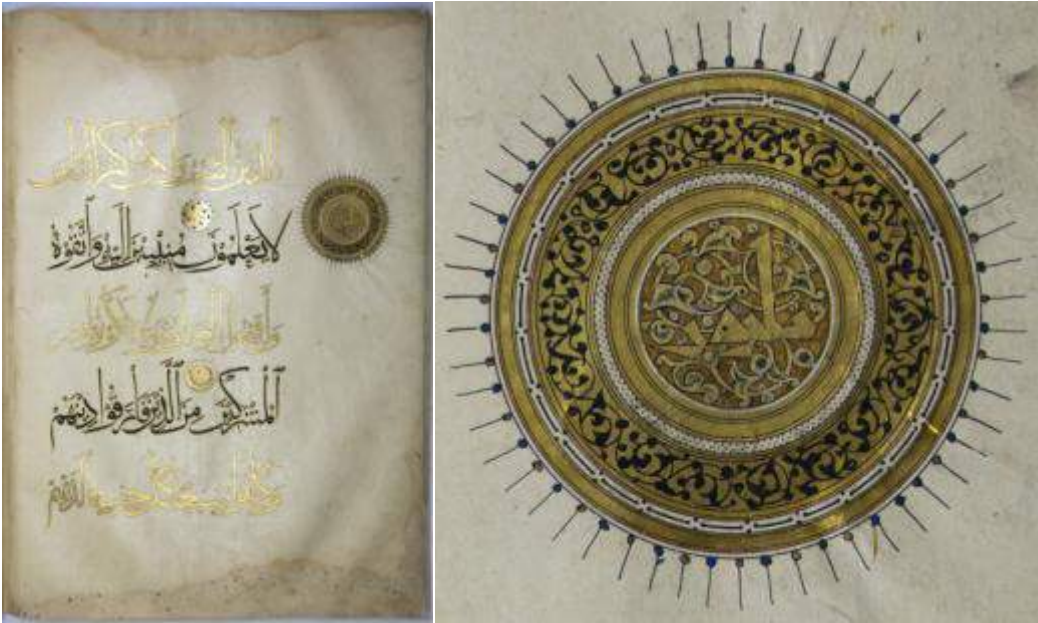 ذلك الدين القيم ولكن أكثر الناس
لا يعلمون منيبين إليه واتقوه
وأقيموا الصلوة ولا تكونوا من
المشركين من الذين فرقوا دينهم
وكانوا شيعا كل حزب بما لديهم